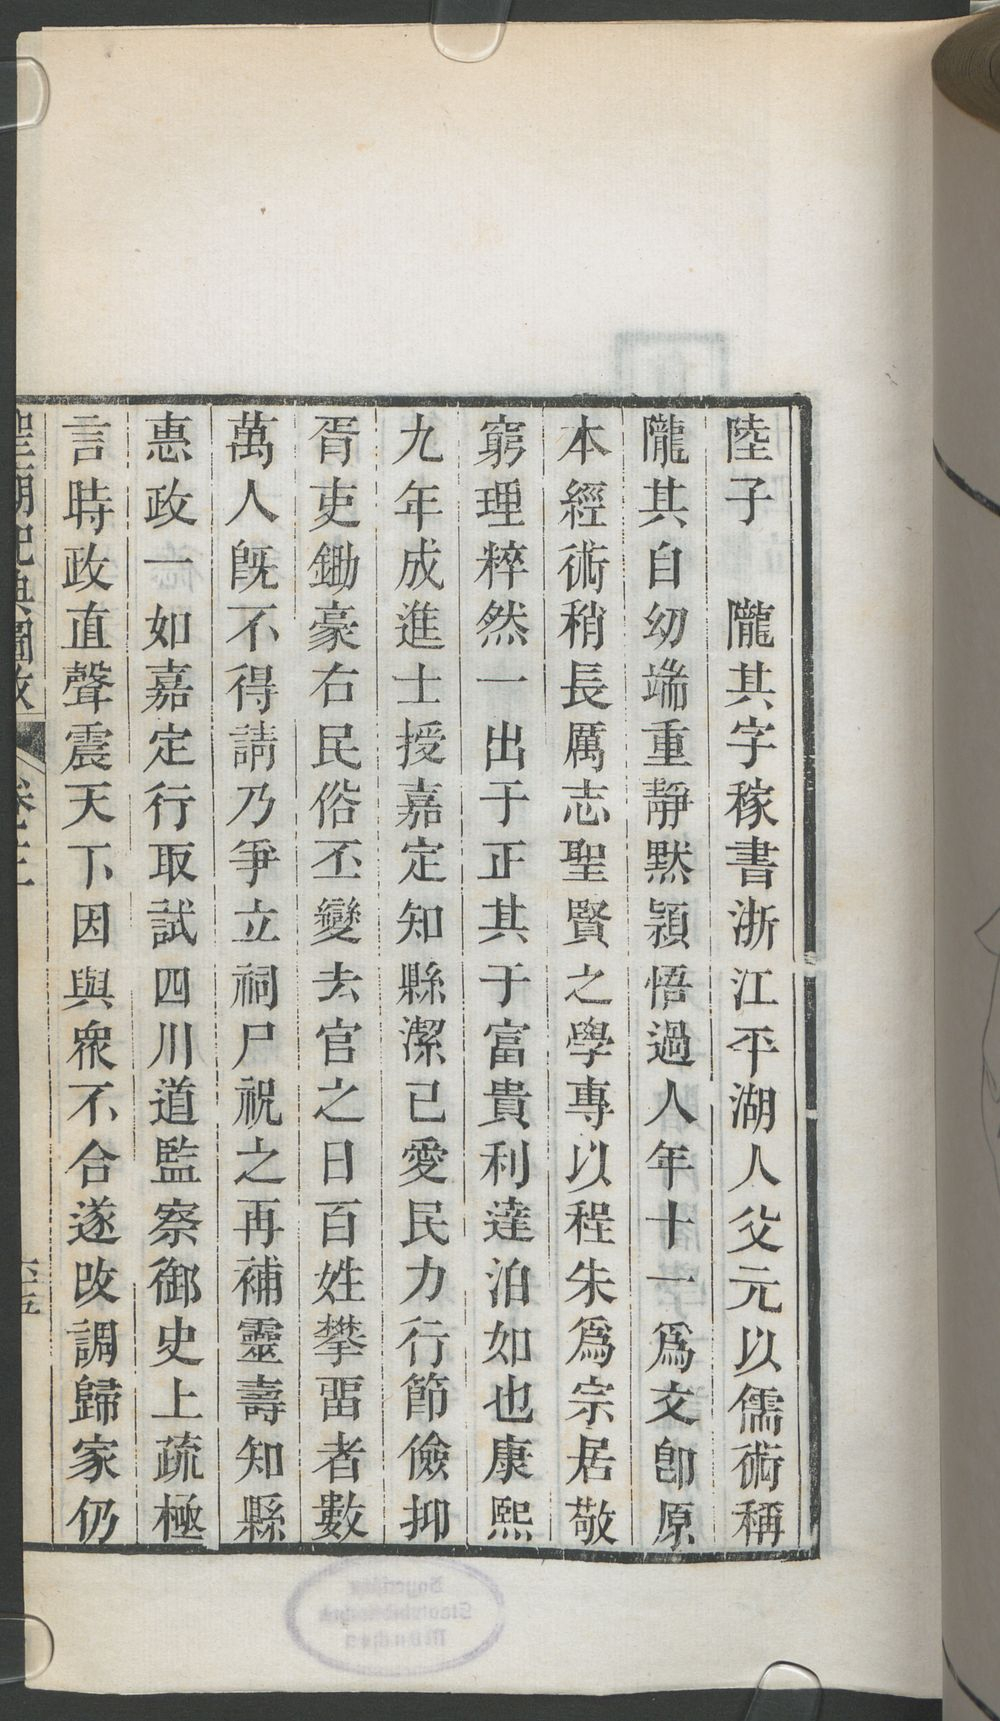 陸子　隴其字稼書浙江平湖人父元以儒術稱
隴其自幼端重靜默穎悟過人年十一爲文卽原
本經術稍長厲志聖賢之學專以程朱爲宗居敬
窮理粹然一出于正其于富貴利達泊如也康熙
九年成進士授嘉定知縣潔己愛民力行節儉抑
胥吏鋤豪右民俗丕變去官之日百姓攀畱者數
萬人旣不得請乃爭立祠尸祝之再補靈壽知縣
惠政一如嘉定行取試四川道監察御史上疏極
言時政直聲震天下因與衆不合遂改調歸家仍
聖廟祀典圖攷
卷三
Bayerische
Staatsbibliothek
München